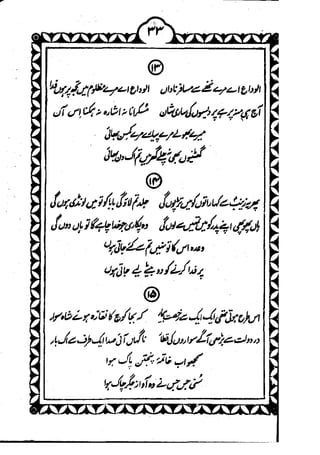 ۳۳
۱۳
الوداع اے مرے ننھے سے مسافر ناداں الوداع اے مرے مظلوم میں تجھ پر ہوں فدا
آج ہی منہ پر ہے پردیسوں کی ساری شان مسکرانا نہ اشارہ نہ ہمکنا اس آن
میرے بھولے مرے پیارے مرے کمسن بھائی
گھٹنیوں بھی نہ چلے گھر میں تم اک دن بھائی
۱۴
پھر یہ زینبؑ نے کہا راتوں کو میں تڑپوں گی جلد تم لاؤ گی بابا کو تو میں لونڈی ہوں گی
ہاں پھوپھی اپنے پدر کو میں تمہیں سے لوں گی وہ پکاری جو خدا چاہے گا تو ہاں دوں گی
وعدہ اس کا تو نہیں تم سے کئے جاتی ہوں
پر فدا کرنے کو دو بیٹے لیے جاتی ہوں
۱۵
اس طرح ہوتی تھی ایک ایک سے رخصت کہ بجا کوچ کا نقارہ ہوئے شاہ سوار
در دولت سے بڑھی آگے سواروں کی قطار ناگہاں آئی صدا ایک طرف سے اک بار
گھر اب خاتمۂ پنجتنِ پاک ہوا
سنی جس جس نے وہ آواز جگر چاک ہوا